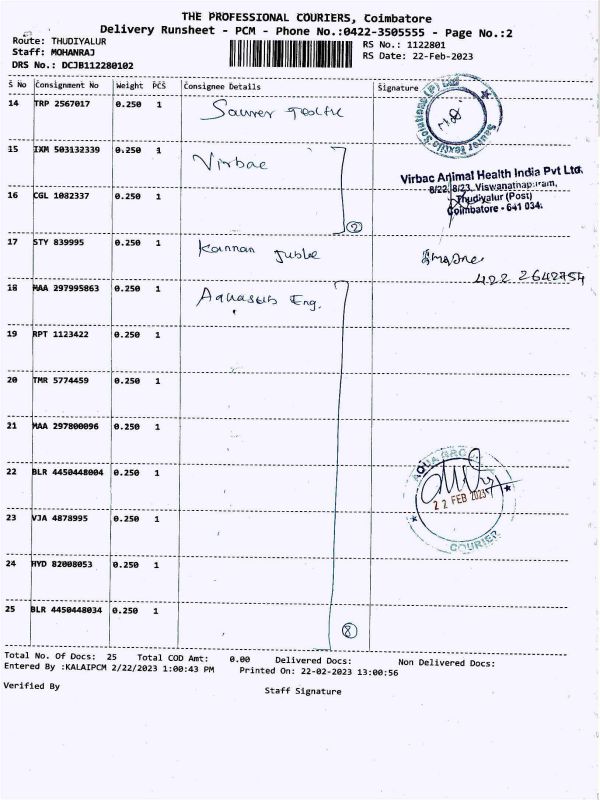 THE PROFESSIONAL COURIERS, Coimbatore
Delivery Runsheet - PCM - Phone No.:0422-3505555 - Page No.:2
Route: THUDIYALUR
RS No.: 1122801
Staff: MOHANRAJ
RS Date: 22-Feb-2023
DRS No.: DCJB112280102
S No Consignment No Weight PCS Consignee Details Signature
14 TRP 2567017 0.250 1 Saurer Textile
Saurer Textile Solutions (P) Ltd
15 IXM 503132339 0.250 1 Virbac
Virbac Animal Health India Pvt Ltd.
8/22, 8/23, Viswanathapuram,
Thudiyalur (Post)
Coimbatore - 641 034.
16 CGL 1082337 0.250 1
2
17 STY 839995 0.250 1 Kannan
422 2642754
18 MAA 297995863 0.250 1 Aquasub Eng.
19 RPT 1123422 0.250 1
20 TMR 5774459 0.250 1
21 MAA 297800096 0.250 1
22 BLR 4450448004 0.250 1
AQUA GROUP
22 FEB 2023
COURIER
23 VJA 4878995 0.250 1
24 HYD 82008053 0.250 1
25 BLR 4450448034 0.250 1
8
Total No. Of Docs: 25 Total COD Amt: 0.00 Delivered Docs: Non Delivered Docs:
Entered By :KALAIPCM 2/22/2023 1:00:43 PM Printed On: 22-02-2023 13:00:56
Verified By
Staff Signature